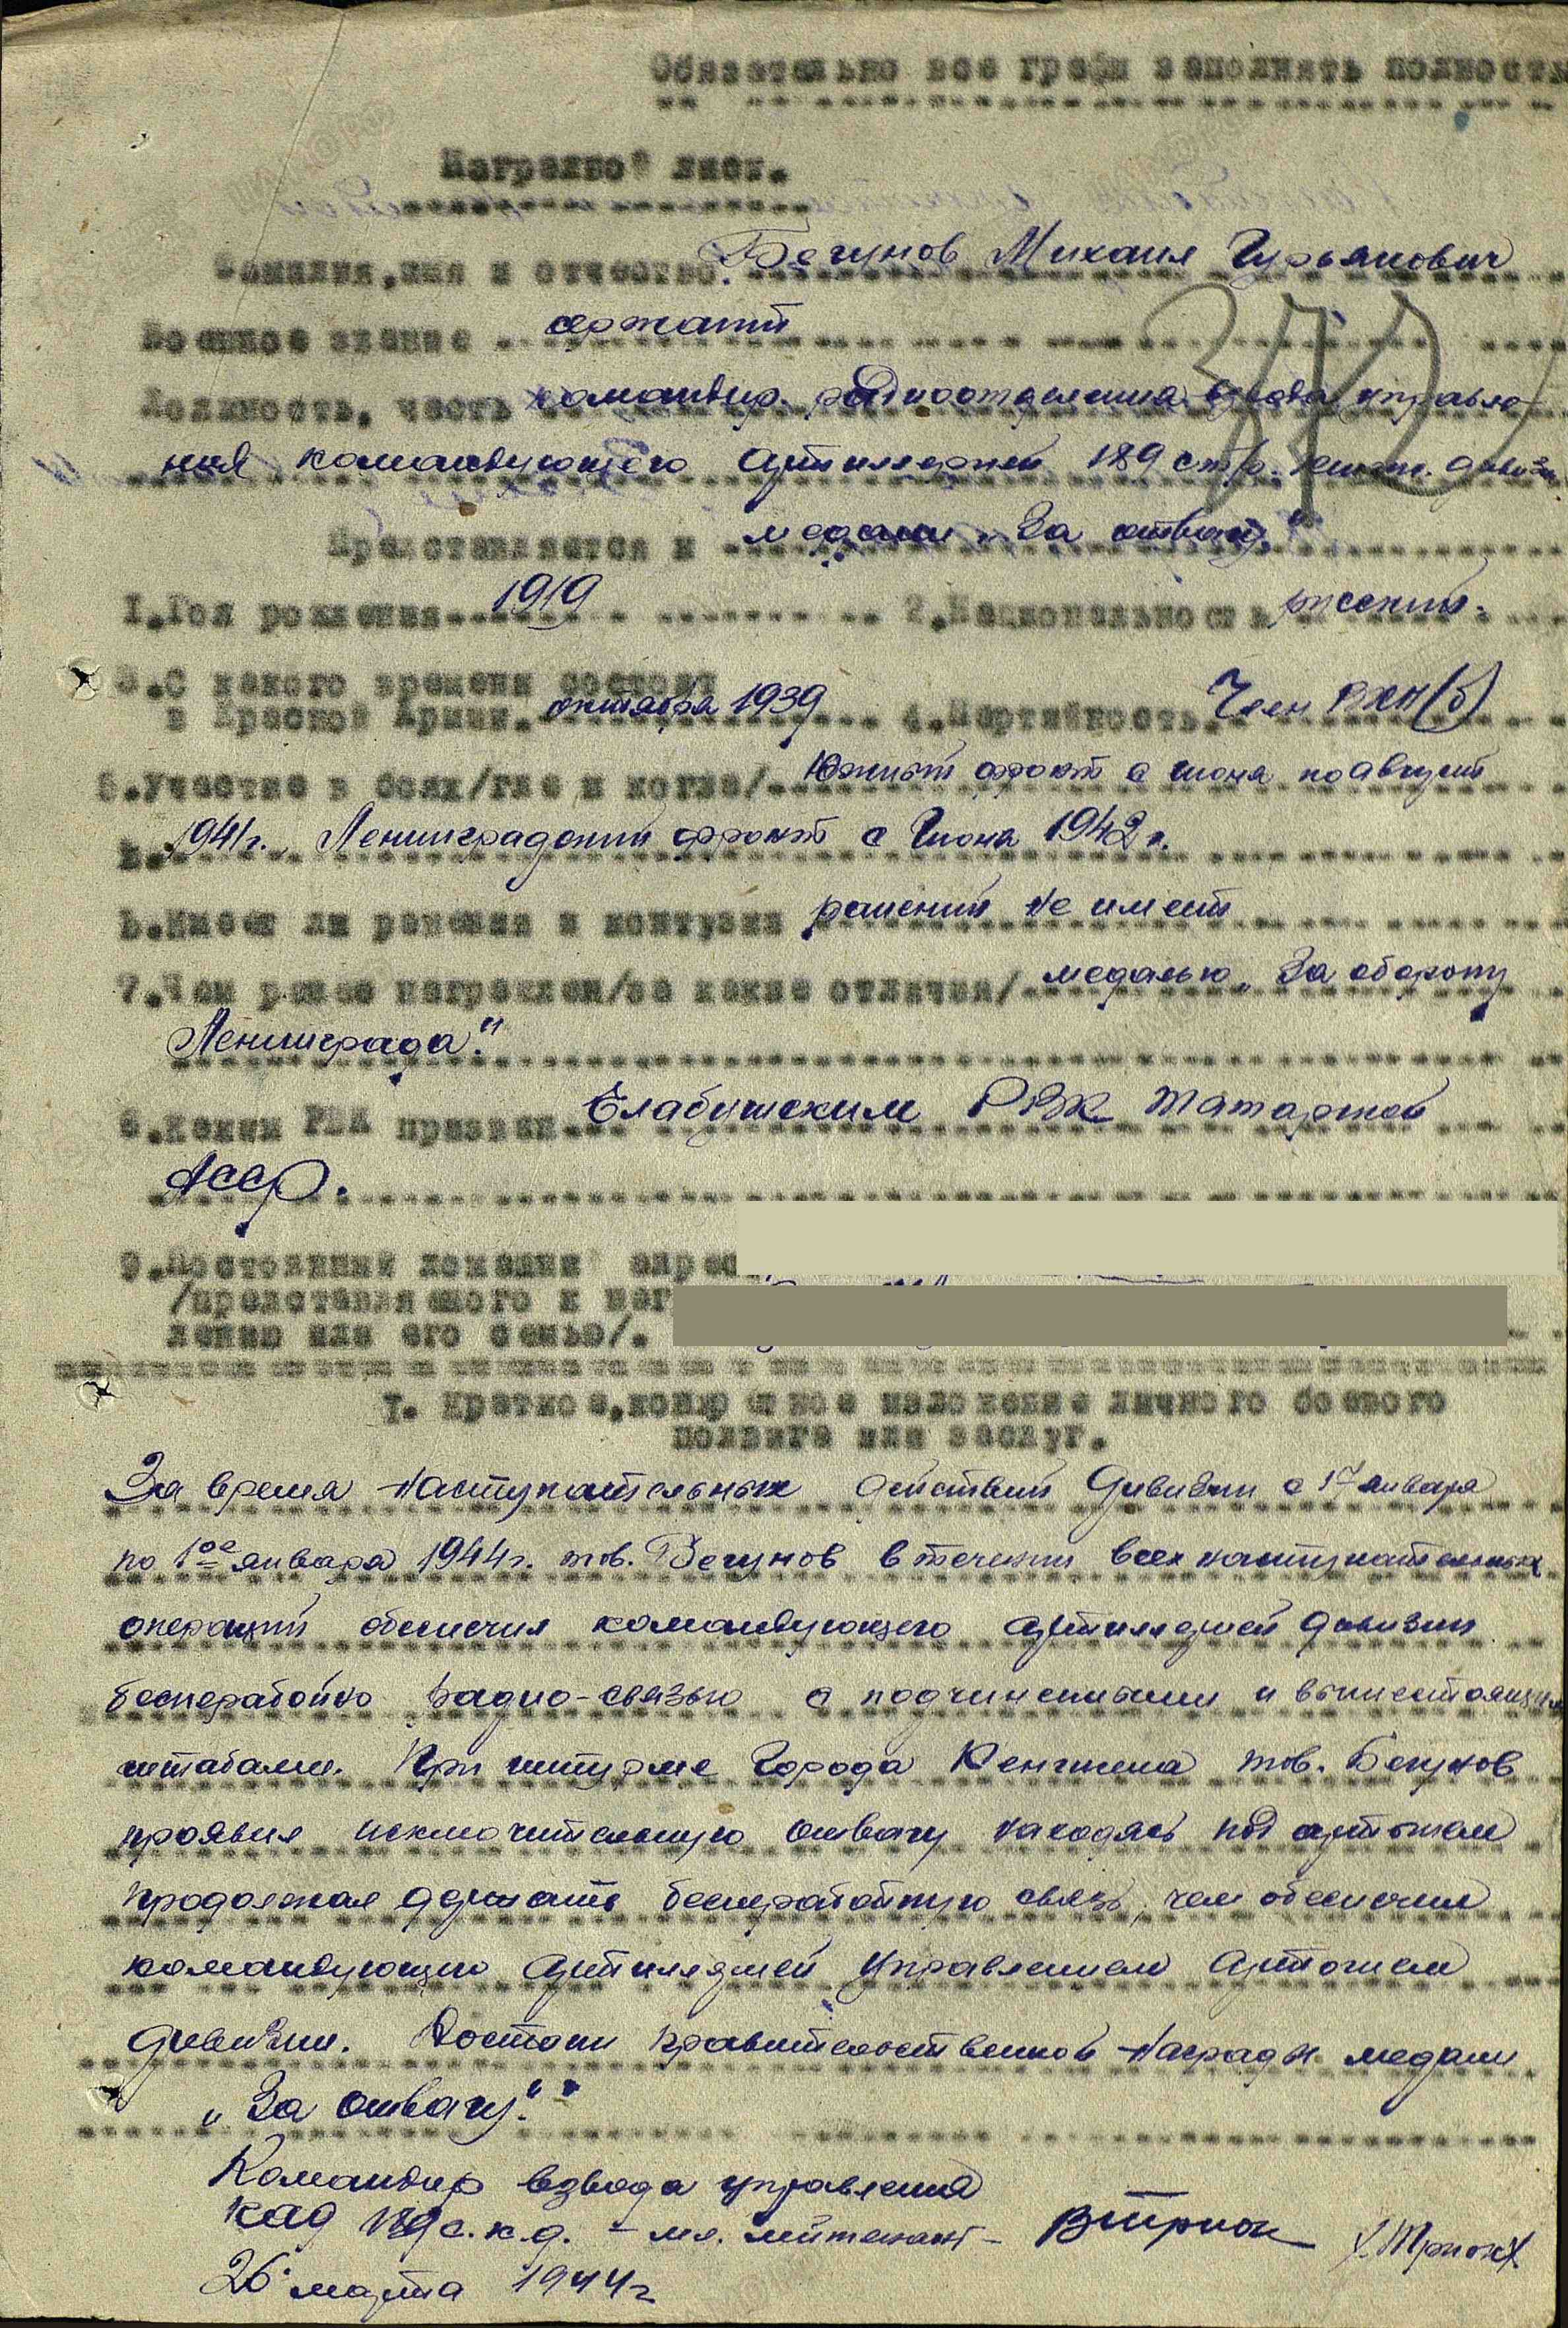 Обязательно все графы заполнять полностью
Наградной лист.
Фамилия, имя и отчество. Бегунов Михаил Гурьянович
Военное звание сержант
Должность, часть командир радиоотделения взвода управле-
ния командующего артиллерией 189 стр. дивизии
Представляется к медали „За отвагу."
1.Год рождения 1919 2.Национальность русский.
3.С какого времени состоит
в Красной Армии. октября 1939 4.Партийность. Член ВКП(б)
5.Участие в боях/где и когда/ Южный фронт с июня по август
1941г. Ленинградский фронт с Июня 1942 г.
6.Имеет ли ранения и контузии ранений не имеет
7.Чем ранее награжден/за какие отличия/ медалью „За оборону
Ленинграда."
8.Каким РВК призван Елабужским РВК Татарской
АССР.
9.Постоянный домашний адрес
/представляемого к наг
лению или его семью/.
1. Краткое, конкретное изложение личного боевого
подвига или заслуг.
За время наступательных действий дивизии с 17 января
по 1ое января 1944г. тов. Бегунов в течении всех наступательных
операций обеспечил командующего артиллерией дивизии
бесперебойно радио-связью с подчиненными и вышестоящими
штабами. При штурме Города тов. Бегунов
проявил исключительную отвагу находясь под артогнем
продолжая держать бесперебойную связь, чем обеспечил
командующего артиллерией управлением артогнем
дивизии. Достоин правительственной награды медали
„За отвагу."
Командир взвода управления
КАД 189 с.к.д. – мл. лейтенант –
26 марта 1944г